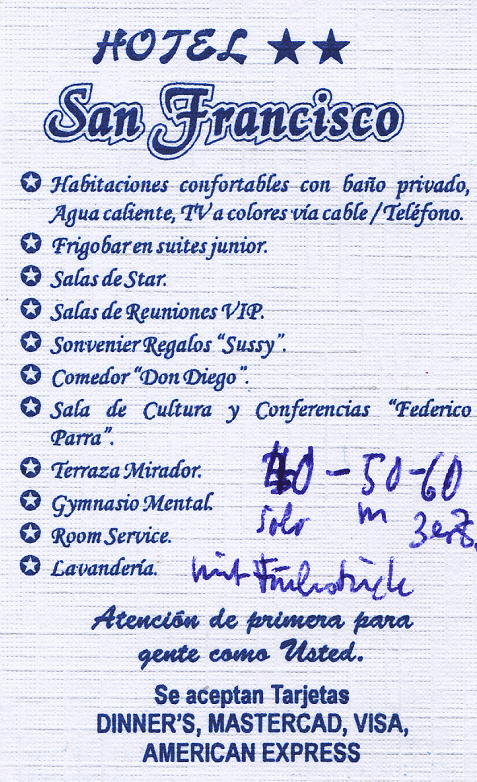 HOTEL ★★
San Francisco
Habitaciones confortables con baño privado,
Agua caliente, TV a colores vía cable / Teléfono.
Frigobar en suites junior.
Salas de Star.
Salas de Reuniones VIP.
Sonvenier Regalos "Sussy".
Comedor "Don Diego".
Sala de Cultura y Conferencias "Federico
Parra".
Terraza Mirador.
40 - 50 - 60
Gymnasio Mental.
solo m
Room Service.
Lavandería.
mit Frühstück
Atención de primera para
gente como Usted.
Se aceptan Tarjetas
DINNER'S, MASTERCAD, VISA,
AMERICAN EXPRESS